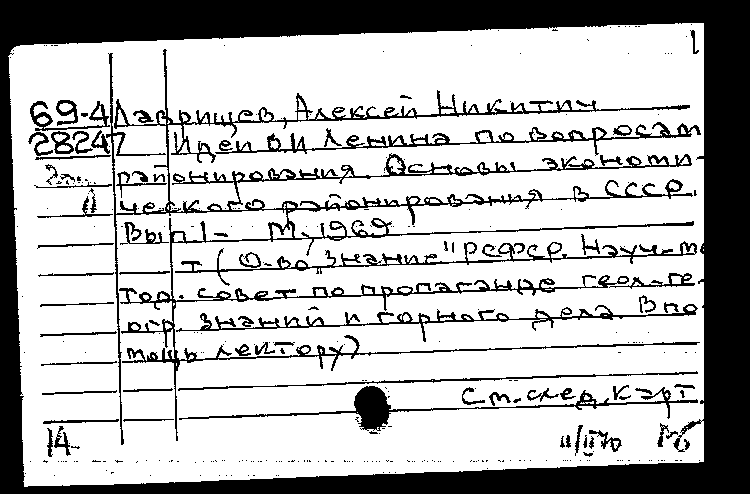 1
69-4 Лаврищев, Алексей Никитич
28247 Идеи В.И Ленина по вопросам
районирования. Основы экономи-
ческого районирования в СССР.
Вып.1- М., 1969
т (О-во „Знание" РСФСР. Науч.-ме
тод. совет по пропаганде геол.-ге-
огр. знаний и горного дела. В по-
мощь лектору)
См. след. карт.
14